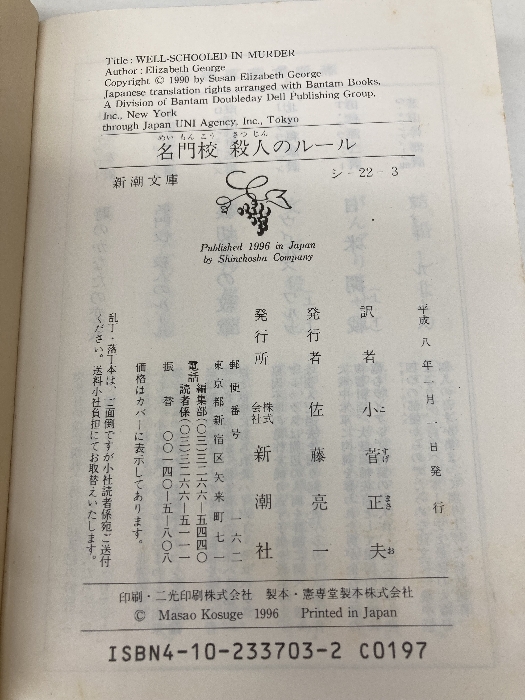 Title : WELL-SCHOOLED IN MURDER
Author : Elizabeth George
Copyright © 1990 by Susan Elizabeth George
Japanese translation rights arranged with Bantam Books,
A Division of Bantam Doubleday Dell Publishing Group,
Inc., New York
through Japan UNI Agency, Inc., Tokyo
めいもんこう さつじん
名門校 殺人のルール
新潮文庫
シ - 22 - 3
Published 1996 in Japan
by Shinchosha Company
平成八年一月一日発行
訳者 小菅正夫
こ すげ まさ お
発行者 佐藤亮一
発行所 株式会社 新潮社
郵便番号 一六二
東京都新宿区矢来町七一
電話 編集部(〇三)三二六六―五四四〇
読者係(〇三)三二六六―五一一一
振替 〇〇一四〇―五―八〇八
価格はカバーに表示してあります。
乱丁・落丁本は、ご面倒ですが小社読者係宛ご送付
ください。送料小社負担にてお取替えいたします。
印刷・二光印刷株式会社 製本・憲専堂製本株式会社
© Masao Kosuge 1996 Printed in Japan
ISBN4-10-233703-2 C0197